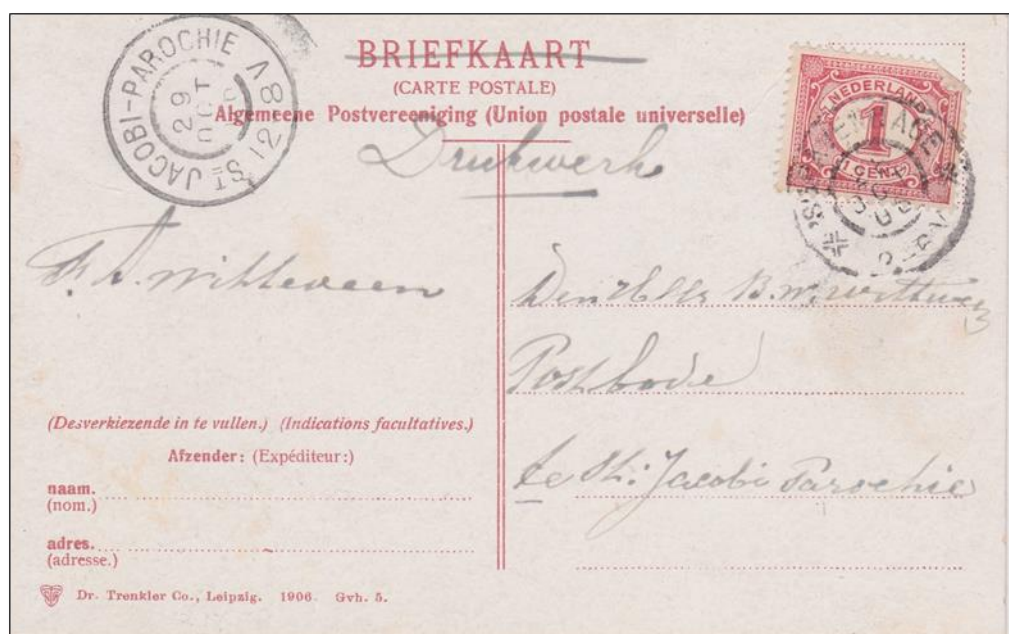 ST JACOBI-PAROCHIE
29 OCT
8-12V
BRIEFKAART
(CARTE POSTALE)
Algemeene Postvereeniging (Union postale universelle)
NEDERLAND
1
CENT
'S-GRAVENHAGE
Drukwerk
Witteveen
Den Heer B. W.
Postbode
te St: Jacobi Parochie
(Desverkiezende in te vullen.) (Indications facultatives.)
Afzender: (Expéditeur:)
naam.
(nom.)
adres.
(adresse.)
Dr. Trenkler Co., Leipzig. 1906. Gvh. 5.